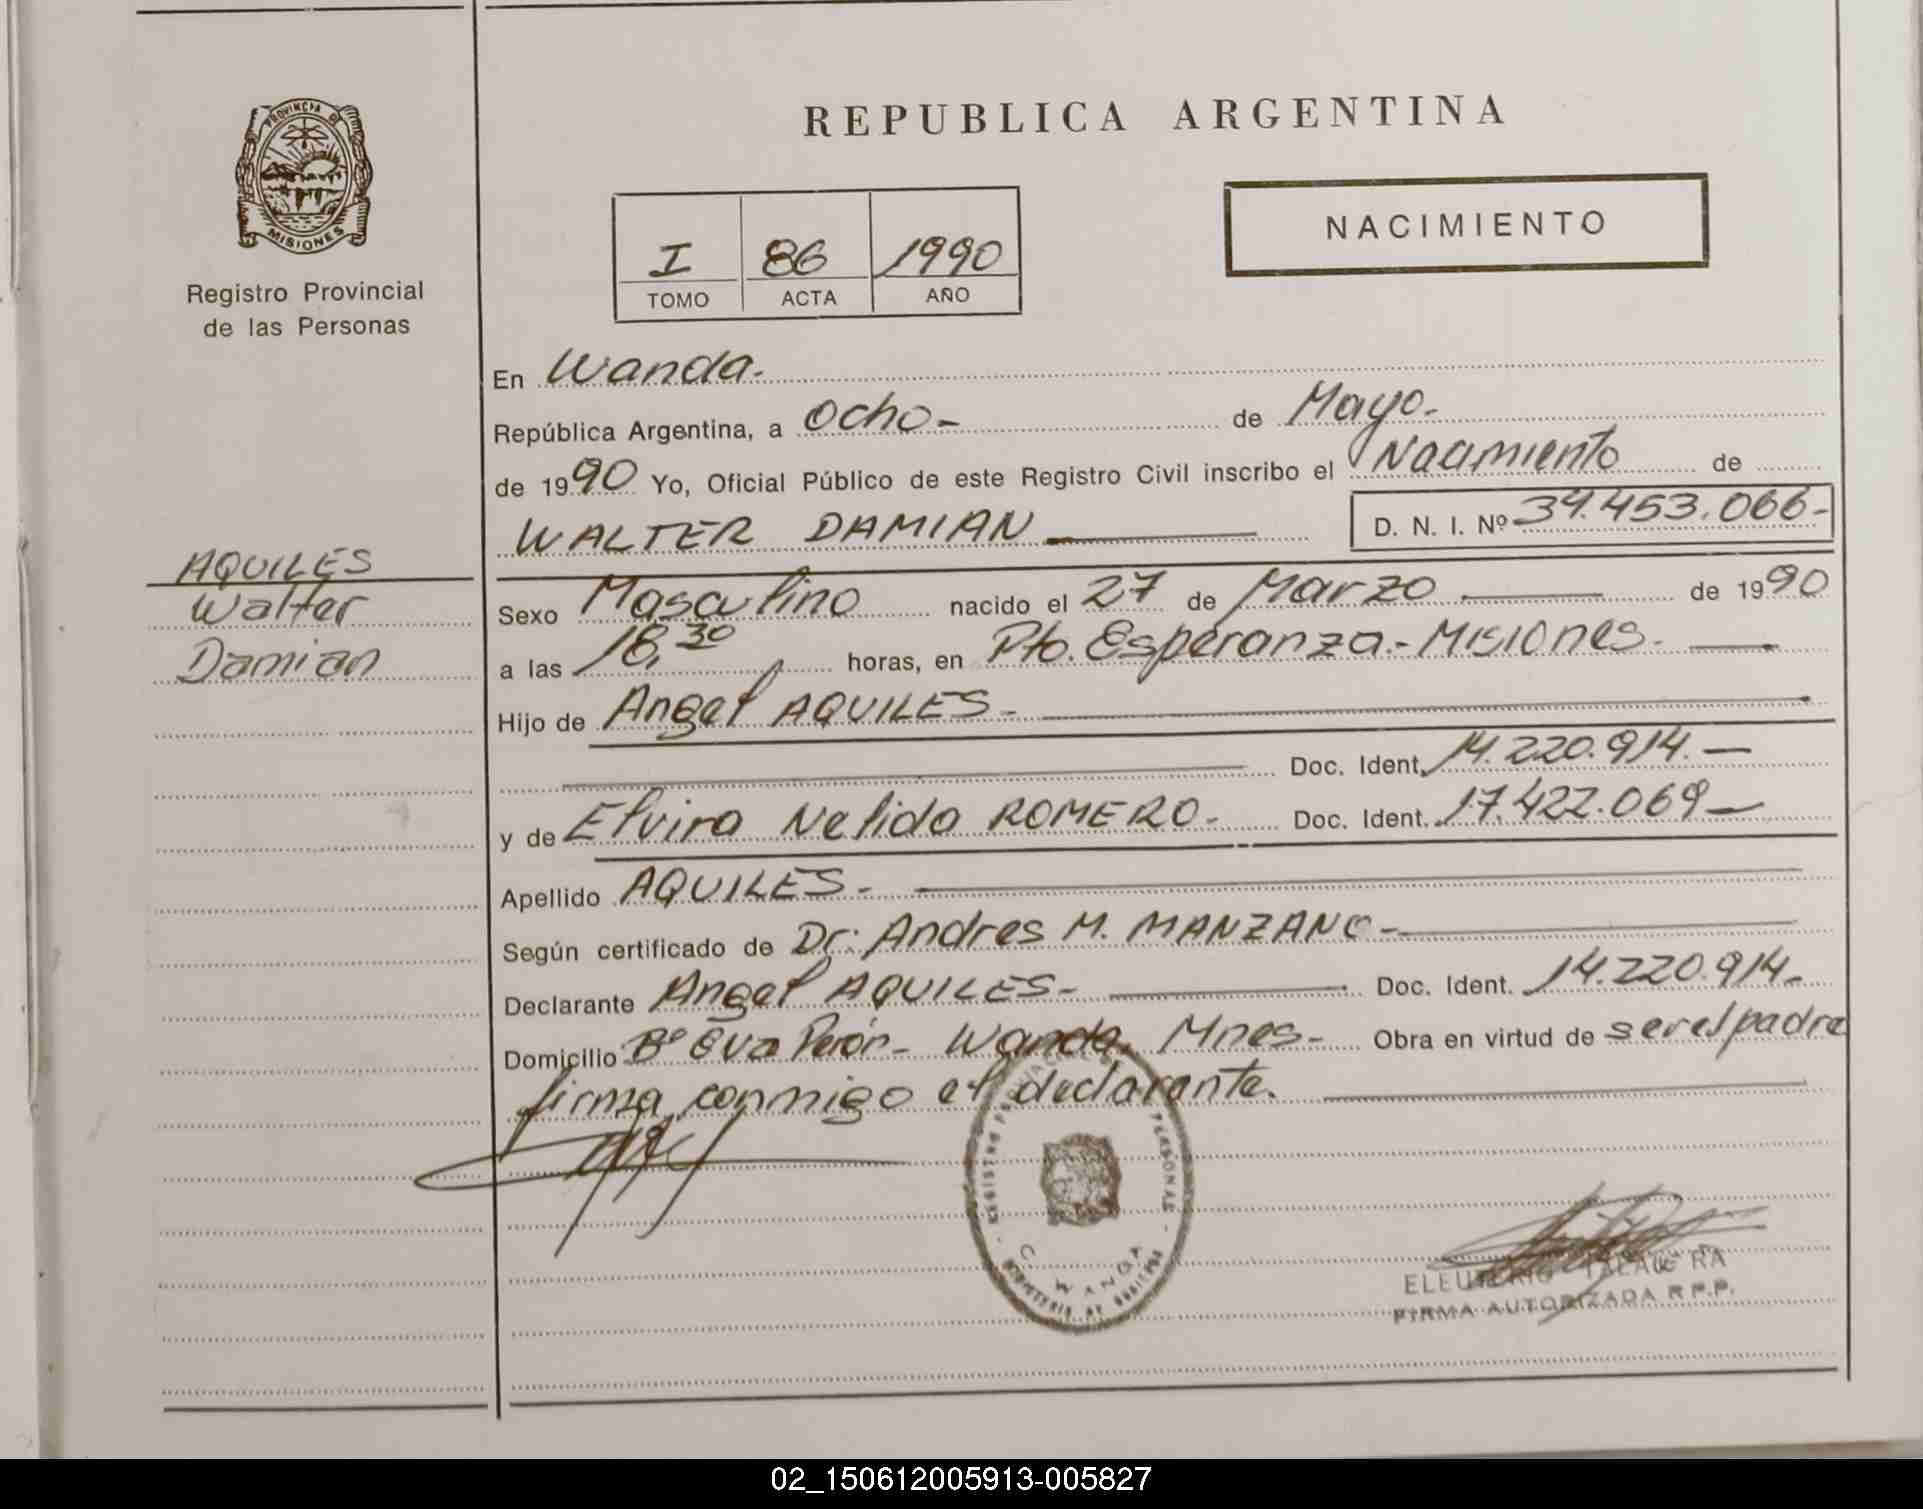 REPUBLICA ARGENTINA
PROVINCIA D
MISIONES
Registro Provincial
de las Personas
NACIMIENTO
I 86 1990
TOMO ACTA AÑO
En Wanda.
República Argentina, a Ocho- de Mayo.
de 1990 Yo, Oficial Público de este Registro Civil inscribo el Nacimiento de
WALTER DAMIAN D. N. I. Nº 34.453.066-
AQUILES
Walter
Damian
Sexo Masculino nacido el 27 de Marzo de 1990
a las 18,30 horas, en Pto. Esperanza.- Misiones.
Hijo de Angel AQUILES-
Doc. Ident. 14.220.914.-
y de Elvira Nelida ROMERO- Doc. Ident. 17.422.069-
Apellido AQUILES-
Según certificado de Dr. Andres M. MANZANO-
Declarante Angel AQUILES- Doc. Ident. 14.220.914-
Domicilio Bº Eva Perón- Wanda, Mnes- Obra en virtud de ser el padre
firma conmigo el declarante.
REGISTRO PERSONAS
WANDA
ELEUTERIO TALAVERA
FIRMA AUTORIZADA R.P.P.
02_150612005913-005827